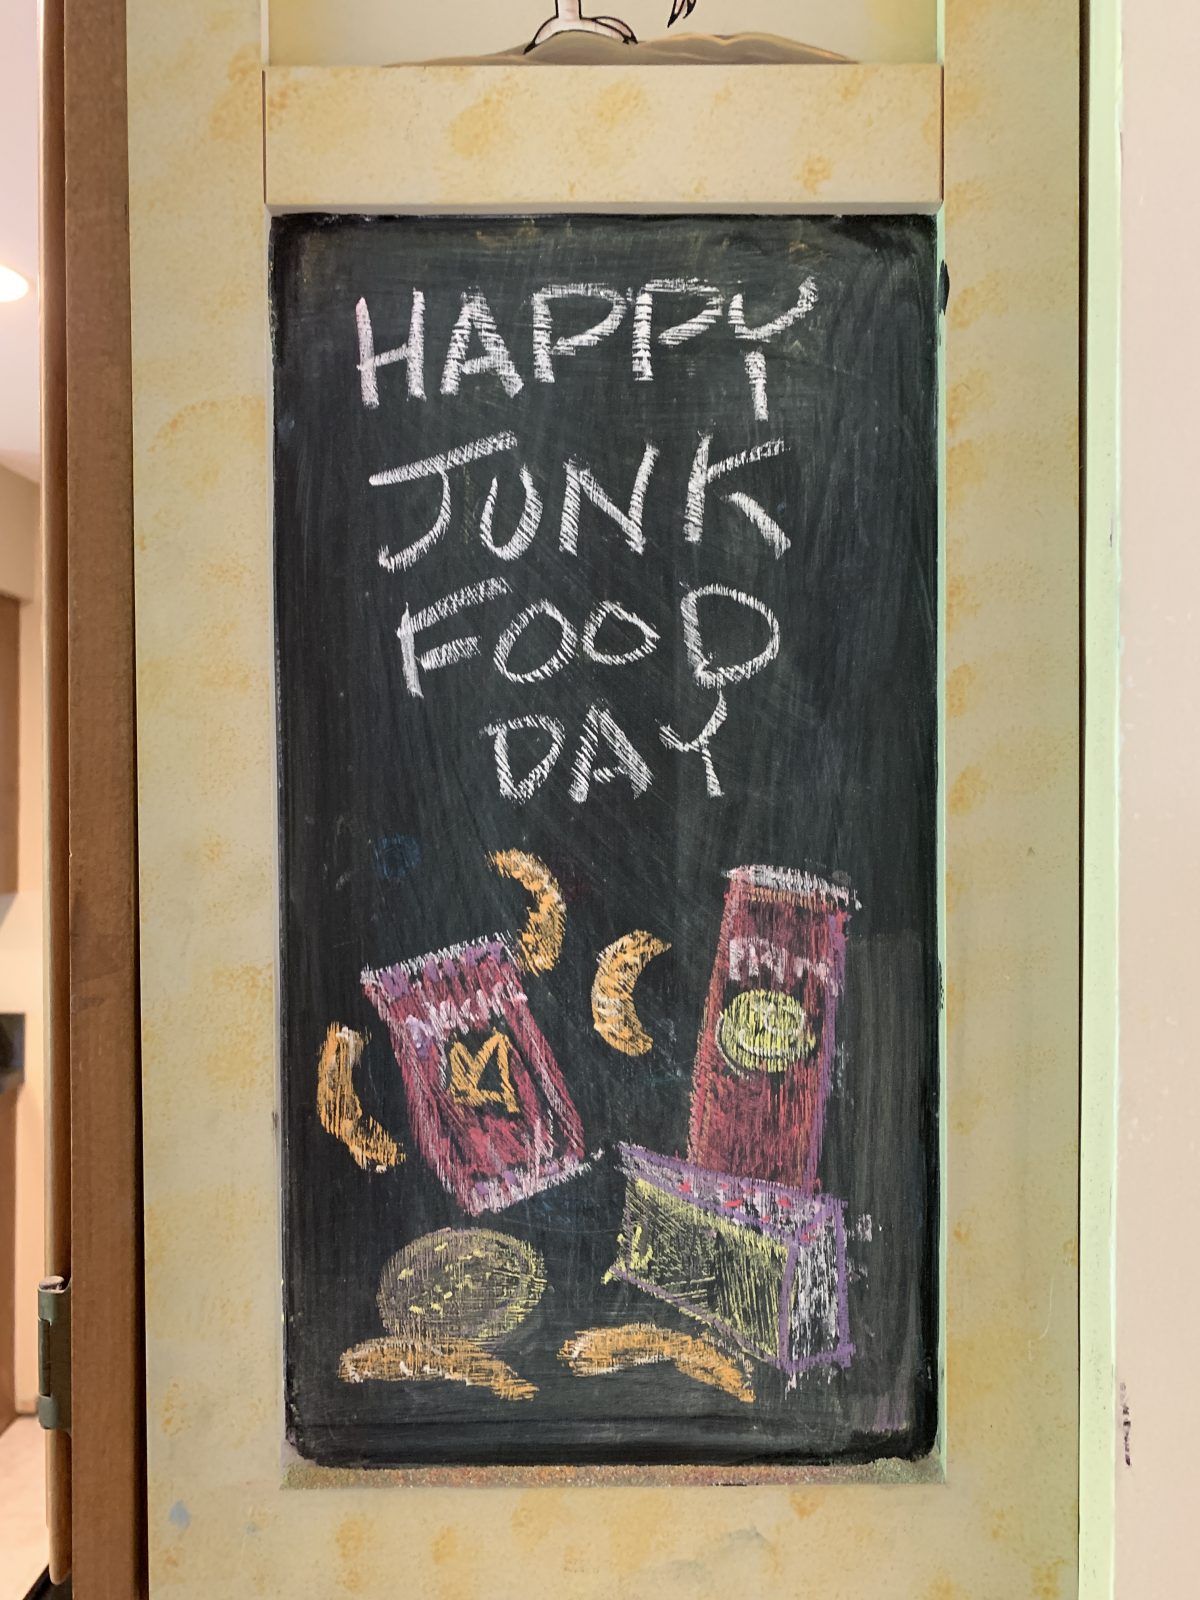 HAPPY
JUNK
FOOD
DAY